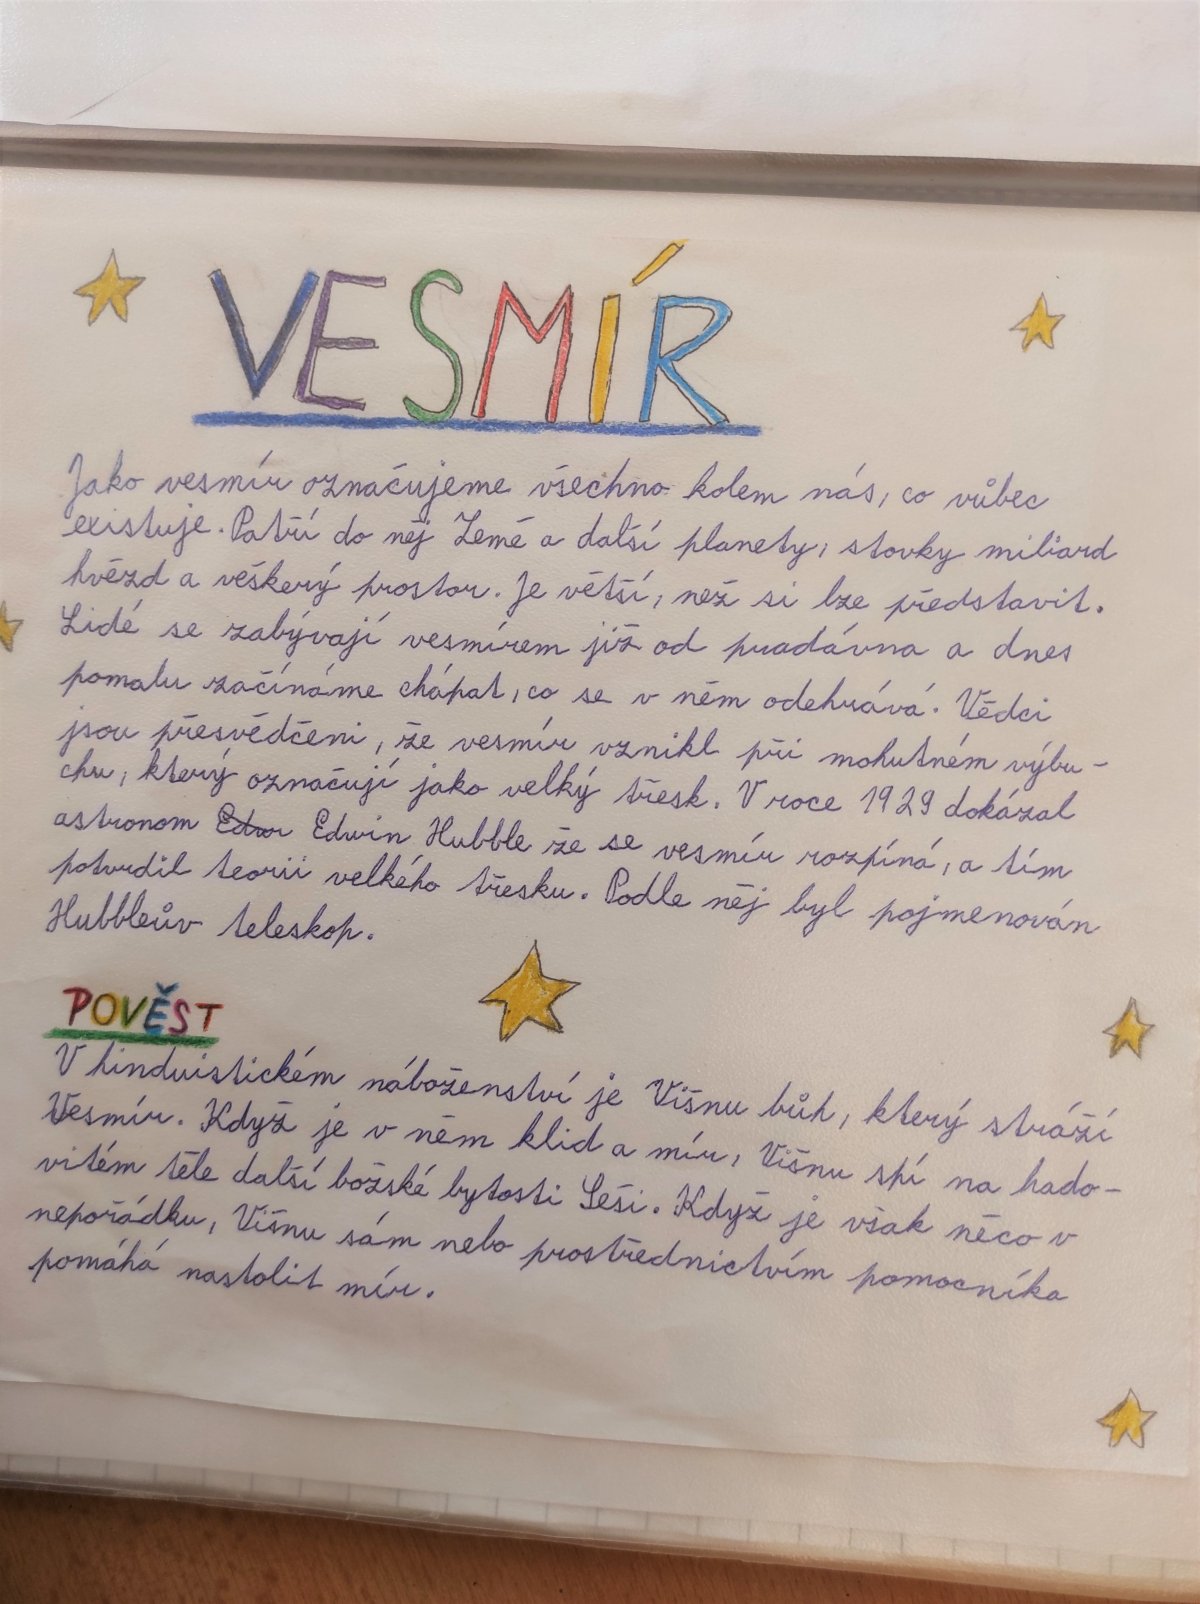 VESMÍR
Jako vesmír označujeme všechno kolem nás, co vůbec
existuje. Patří do něj Země a další planety, stovky miliard
hvězd a veškerý prostor. Je větší, než si lze představit.
Lidé se zabývají vesmírem již od pradávna a dnes
pomalu začínáme chápat, co se v něm odehrává. Vědci
jsou přesvědčeni, že vesmír vznikl při mohutném výbu-
chu, který označují jako velký třesk. V roce 1929 dokázal
astronom Edwin Hubble že se vesmír rozpíná, a tím
potvrdil teorii velkého třesku. Podle něj byl pojmenován
Hubbleův teleskop.
POVĚST
V hinduistickém náboženství je Višnu bůh, který stráží
Vesmír. Když je v něm klid a mír, Višnu spí na hado-
vitém těle další božské bytosti Šeši. Když je však něco v
nepořádku, Višnu sám nebo prostřednictvím pomocníka
pomáhá nastolit mír.